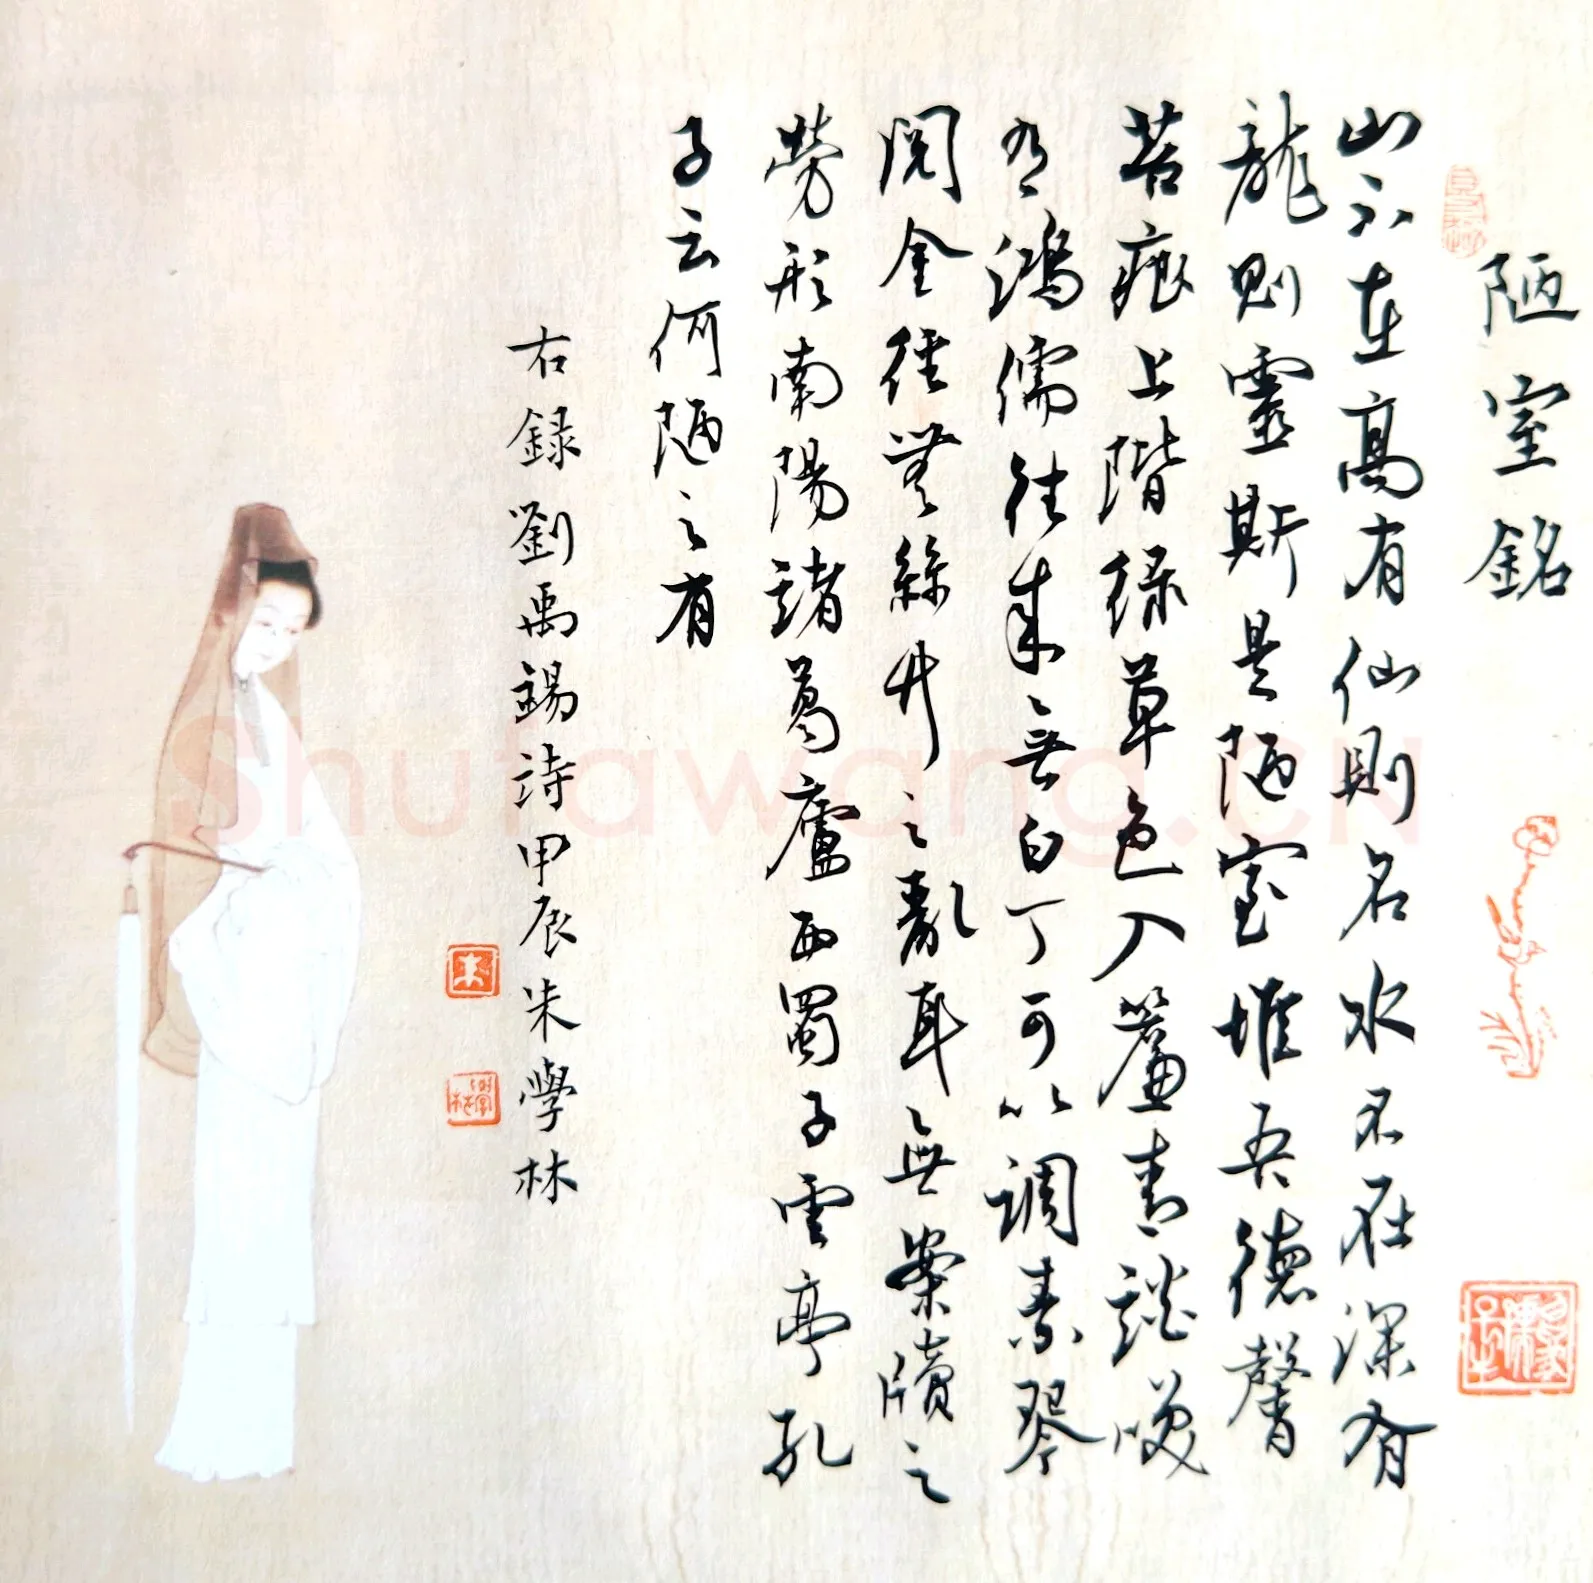 陋室銘
山不在高有仙則名水不在深有
龍則靈斯是陋室惟吾德馨
苔痕上階緑草色入簾青談咲
有鴻儒往来無白丁可以調素琴
閱金經無絲竹之亂耳無案牘之
勞形南陽諸葛廬西蜀子雲亭孔
子云何陋之有
右録劉禹錫詩甲辰朱學林
朱
Shufawang.CN